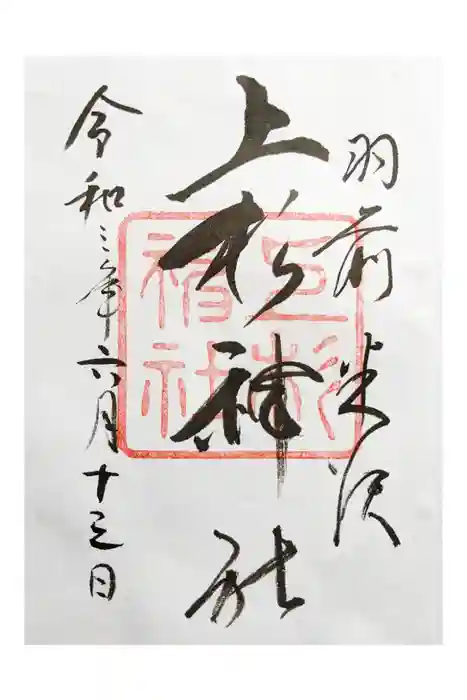 羽前米沢
上杉神社
上杉神社
令和三年六月十三日